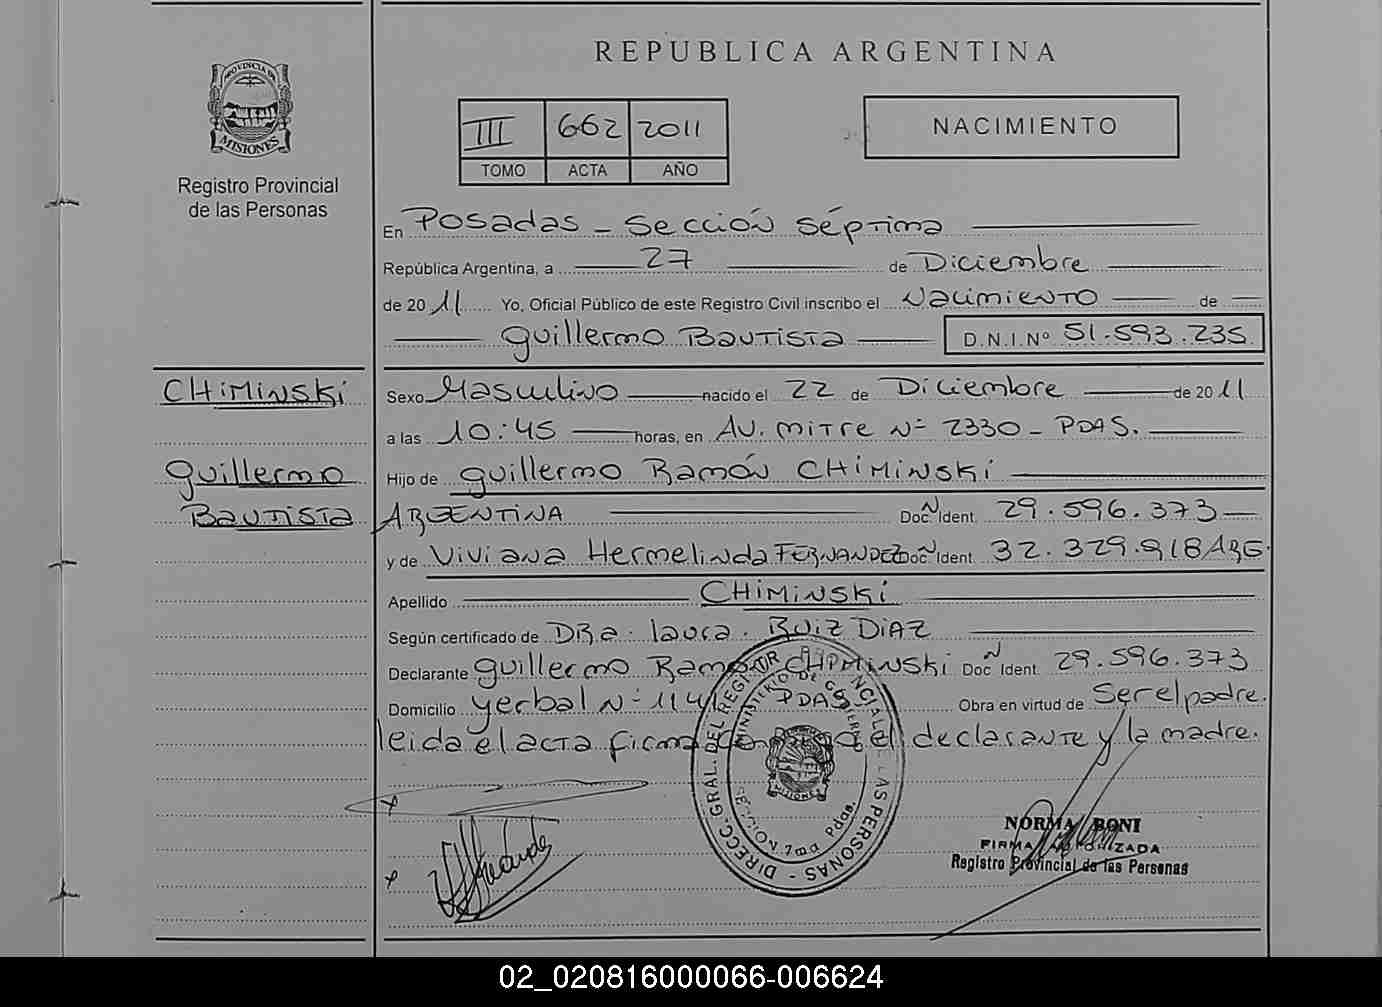 REPUBLICA ARGENTINA
PROVINCIA DE
MISIONES
Registro Provincial
de las Personas
III 662 2011
TOMO ACTA AÑO
NACIMIENTO
En Posadas - Sección Séptima
República Argentina, a 27 de Diciembre
de 2011 Yo, Oficial Público de este Registro Civil inscribo el Nacimiento de
Guillermo Bautista D.N.I.Nº 51.593.235
CHIMINSKI
Guillermo
Bautista
Sexo Masculino nacido el 22 de Diciembre de 2011
a las 10:45 horas, en AV. Mitre Nº 2330 - PDAS.
Hijo de Guillermo Ramón CHIMINSKI
ARGENTINA Doc. Ident. 29.596.373
y de Viviana Hermelinda FERNANDEZ Doc. Ident. 32.329.918 ARG.
Apellido CHIMINSKI
Según certificado de DRa. Laura. RUIZ DIAZ
Declarante Guillermo Ramón CHIMINSKI Doc. Ident. 29.596.373
Domicilio Yerbal Nº 1141 PDAS. Obra en virtud de Ser el padre.
leida el acta firma el declarante y la madre.
DIRECC. GRAL. DEL REGISTR PROVINCIAL DE LAS PERSONAS
MINISTERIO DE GOBIERNO
SECCION 7ma Pdas.
MISIONES
NORMA BONI
FIRMA AUTORIZADA
Registro Provincial de las Personas
02_020816000066-006624